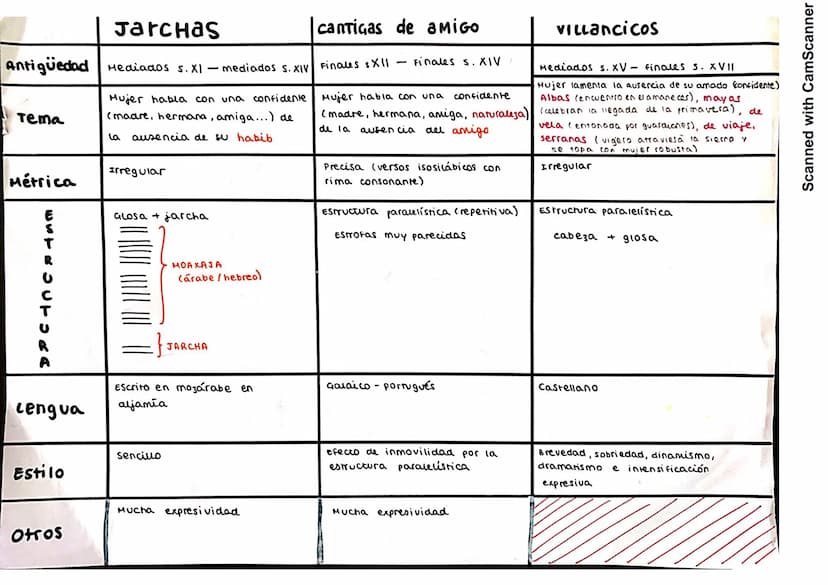 Jarchas
cantigas de amigo
villancicos
Antigüedad
Mediados s. XI — mediados s. XIV
Finales s XII — Finales s. XIV
Mediados s. XV — Finales s. XVII
Tema
Mujer habla con una confidente
(madre, hermana, amiga...) de
la ausencia de su habib
Mujer habla con una confidente
(madre, hermana, amiga, naturaleza)
de la ausencia del amigo
Mujer lamenta la ausencia de su amado (confidente)
Albas (encuentro en el amanecer), mayas
(celebran la llegada de la primavera), de
vela (entonada por guardianes), de viaje,
serranas (viajero atraviesa la sierra y
se topa con mujer robusta)
Métrica
Irregular
Precisa (versos isosilábicos con
rima consonante)
Irregular
ESTRUCTURA
Glosa + jarcha
MOAXAJA
(árabe / hebreo)
JARCHA
Estructura paralelística (repetitiva)
Estrofas muy parecidas
Estructura paralelística
cabeza + glosa
Lengua
Escrito en mozárabe en
aljamía
Galaico - portugués
Castellano
Estilo
Sencillo
Efecto de inmovilidad por la
estructura paralelística
Brevedad, sobriedad, dinamismo,
dramatismo e intensificación
expresiva
Otros
Mucha expresividad
Mucha expresividad
Scanned with CamScanner